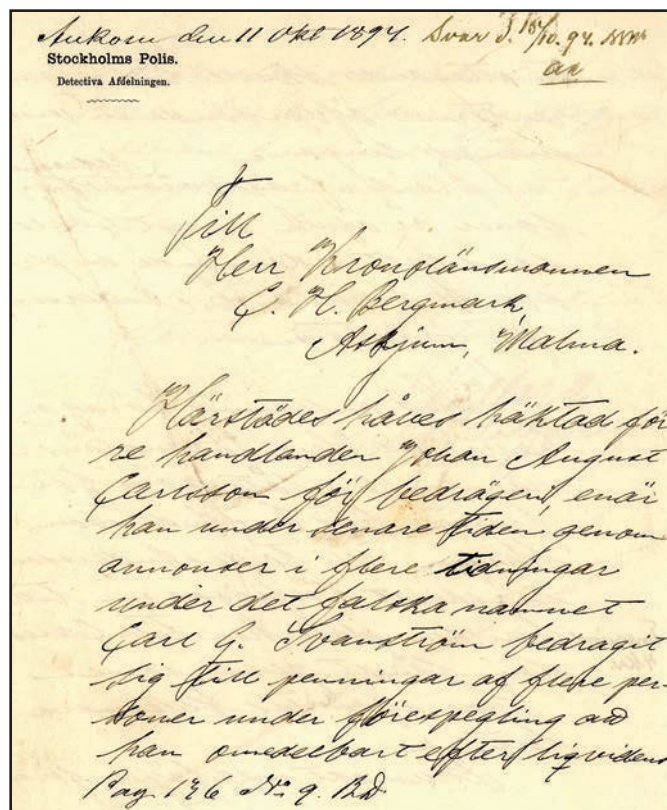 Ankom den 11 Okt 1894. Svar d. 15/10. 94.
Stockholms Polis.
Detectiva Afdelningen.
Till
Herr Kronolänsmannen
C. H. Bergmark,
Askjum, Malma.
Härstädes håves häktad för
re handlanden Johan August
Carlsson för bedrägeri, enär
han under senare tiden genom
annonser i flere tidningar
under det falska namnet
Carl G. Svanström bedragit
sig till penningar af flere per-
soner under förespegling att
han omedelbart efter liqvidens
Pag 196 No 9. B.D.